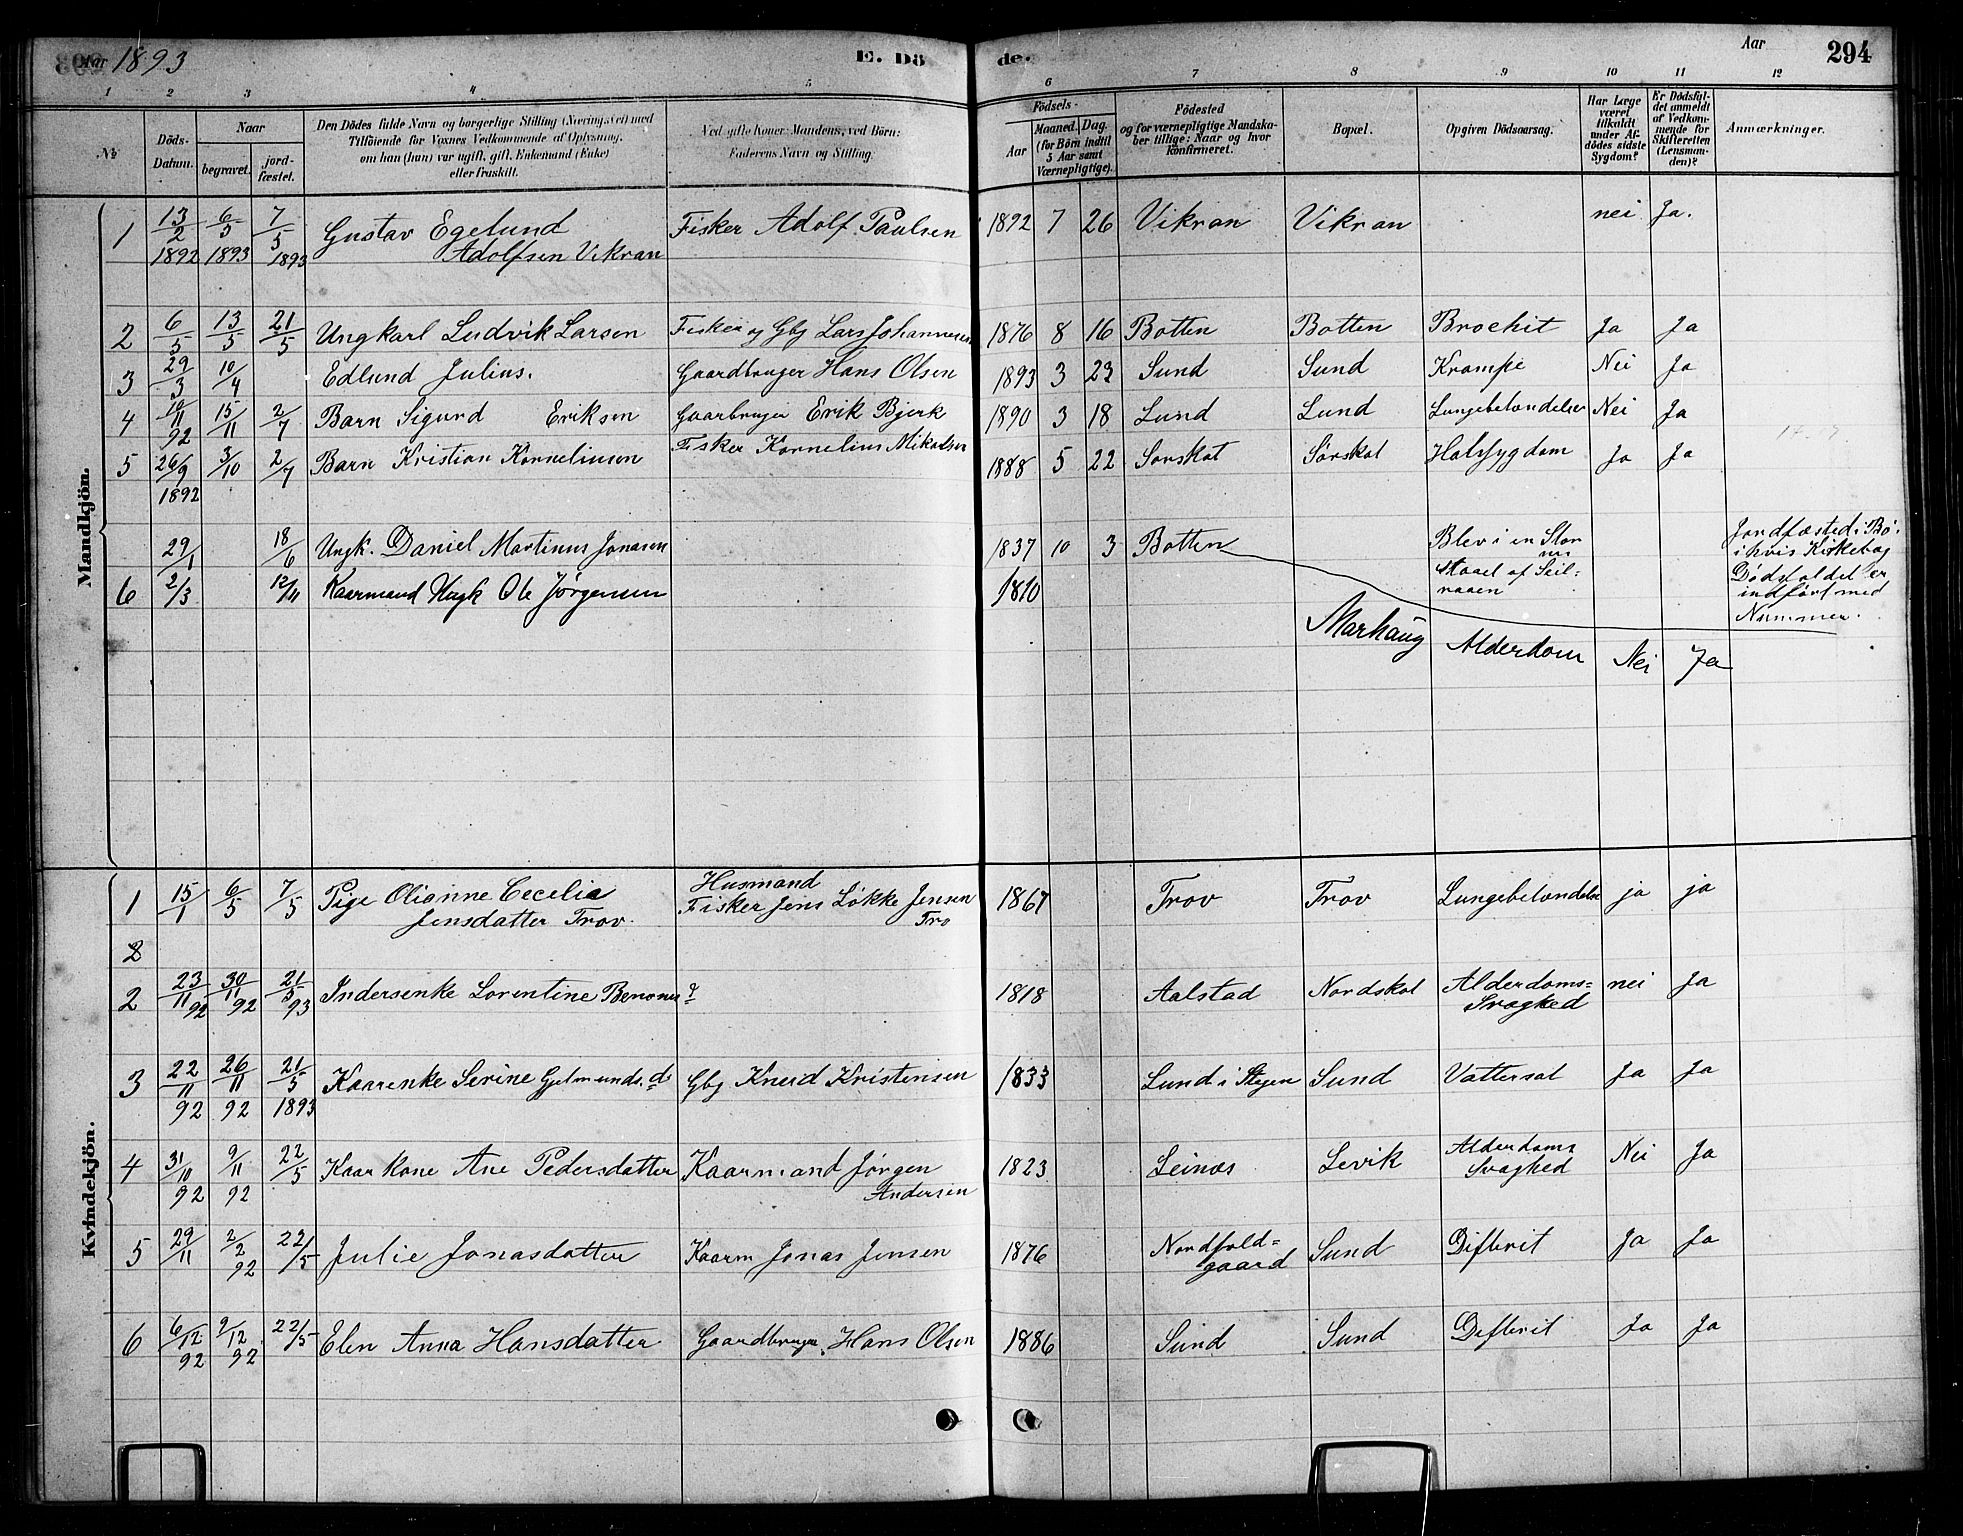 Aar 1893 E. Dö de. Aar 294
1 2 3 4 5 6 7 8 9 10 11 12
No Döds-Datum. Naar begravet. jordfæstet. Den Dödes fulde Navn og borgerlige Stilling (Næringsvei) med Tilföiende for Voxnes Vedkommende af Oplysning, om han (hun) var ugift, gift, Enkemand (Enke) eller fraskilt. Ved gifte Koner: Mandens, ved Börn: Faderens Navn og Stilling. Födsels- Aar Maaned. Dag. (for Børn indtil 5 Aar samt Værnepligtige). Födested og for værnepligtige Mandskaber tillige: Naar og hvor Konfirmeret. Bopæl. Opgiven Dödsaarsag. Har Læge været tilkaldt under Afdödes sidste Sygdom? Er Dödsfaldet anmeldt af Vedkommende for Skifteretten (Lensmanden)? Anmærkninger.
Mandkjön.
1 13/2 1892 6/5 1893 7/5 1893 Gustav Egelund Adolfsen Vikran Fisker Adolf Paulsen 1892 7 26 Vikran Vikran nei Ja.
2 6/5 13/5 21/5 Ungkarl Ludvik Larsen Fisker og Gbg Lars Johannesen 1876 8 16 Botten Botten Brochit Ja Ja
3 29/3 10/4 Edlund Julius. Gaardbruger Hans Olsen 1893 3 23 Sund Sund Krampe Nei Ja
4 10/11 92 15/11 2/7 Barn Sigurd Eriksen Gaarbruger Erik Bjerk 1890 3 18 Lund Lund Lungebetændelse Nei Ja
5 26/9 1892 3/10 2/7 Barn Kristian Korneliusen Fisker Kornelius Mikalsen 1888 5 22 Sørskot Sørskot Halssygdom Ja Ja
29/1 18/6 Ungk. Daniel Martinus Jonasen 1837 10 3 Botten Blev i en Storm
Jordfæsted i Bø i hvis Kirkebog Dødsfaldet er indført med Nummer.
6 2/3 12/11 Kaarmand Ungk Ole Jørgensen 1810 Marhaug Alderdom Nei Ja
Kvindekjön.
1 15/1 6/5 7/5 Pige Olianne Cecelia Jensdatter Trov. Husmand Fisker Jens Løkke Jensen Tro 1867 Trov Trov Lungebetændelse ja ja
2
2 23/11 92 30/11 92 21/5 93 Indersenke Lorentine Benones ? 1818 Aalstad Nordskot Alderdoms-Svaghed nei Ja
3 22/11 92 26/11 92 21/5 1893 Kaarenke Serine Gjelmunds.d. Gbg Kneid Kristensen 1833 Lund i Stegen Sund Vattersot Ja Ja
4 31/10 92 9/11 92 22/5 Kaarkone Ane Pedersdatter Kaarmand Jørgen Andersen 1823 Leinæs Levik Alderdoms Svaghed Nei Ja
5 29/11 2/2 92 22/5 Julie Jonasdatter Kaarm Jonas Jensen 1876 Nordfold-gaard Sund Difterit Ja Ja
6 6/12 92 9/12 92 22/5 Elen Anna Hansdatter Gaardbruger Hans Olsen 1886 Sund Sund Difterit Ja Ja